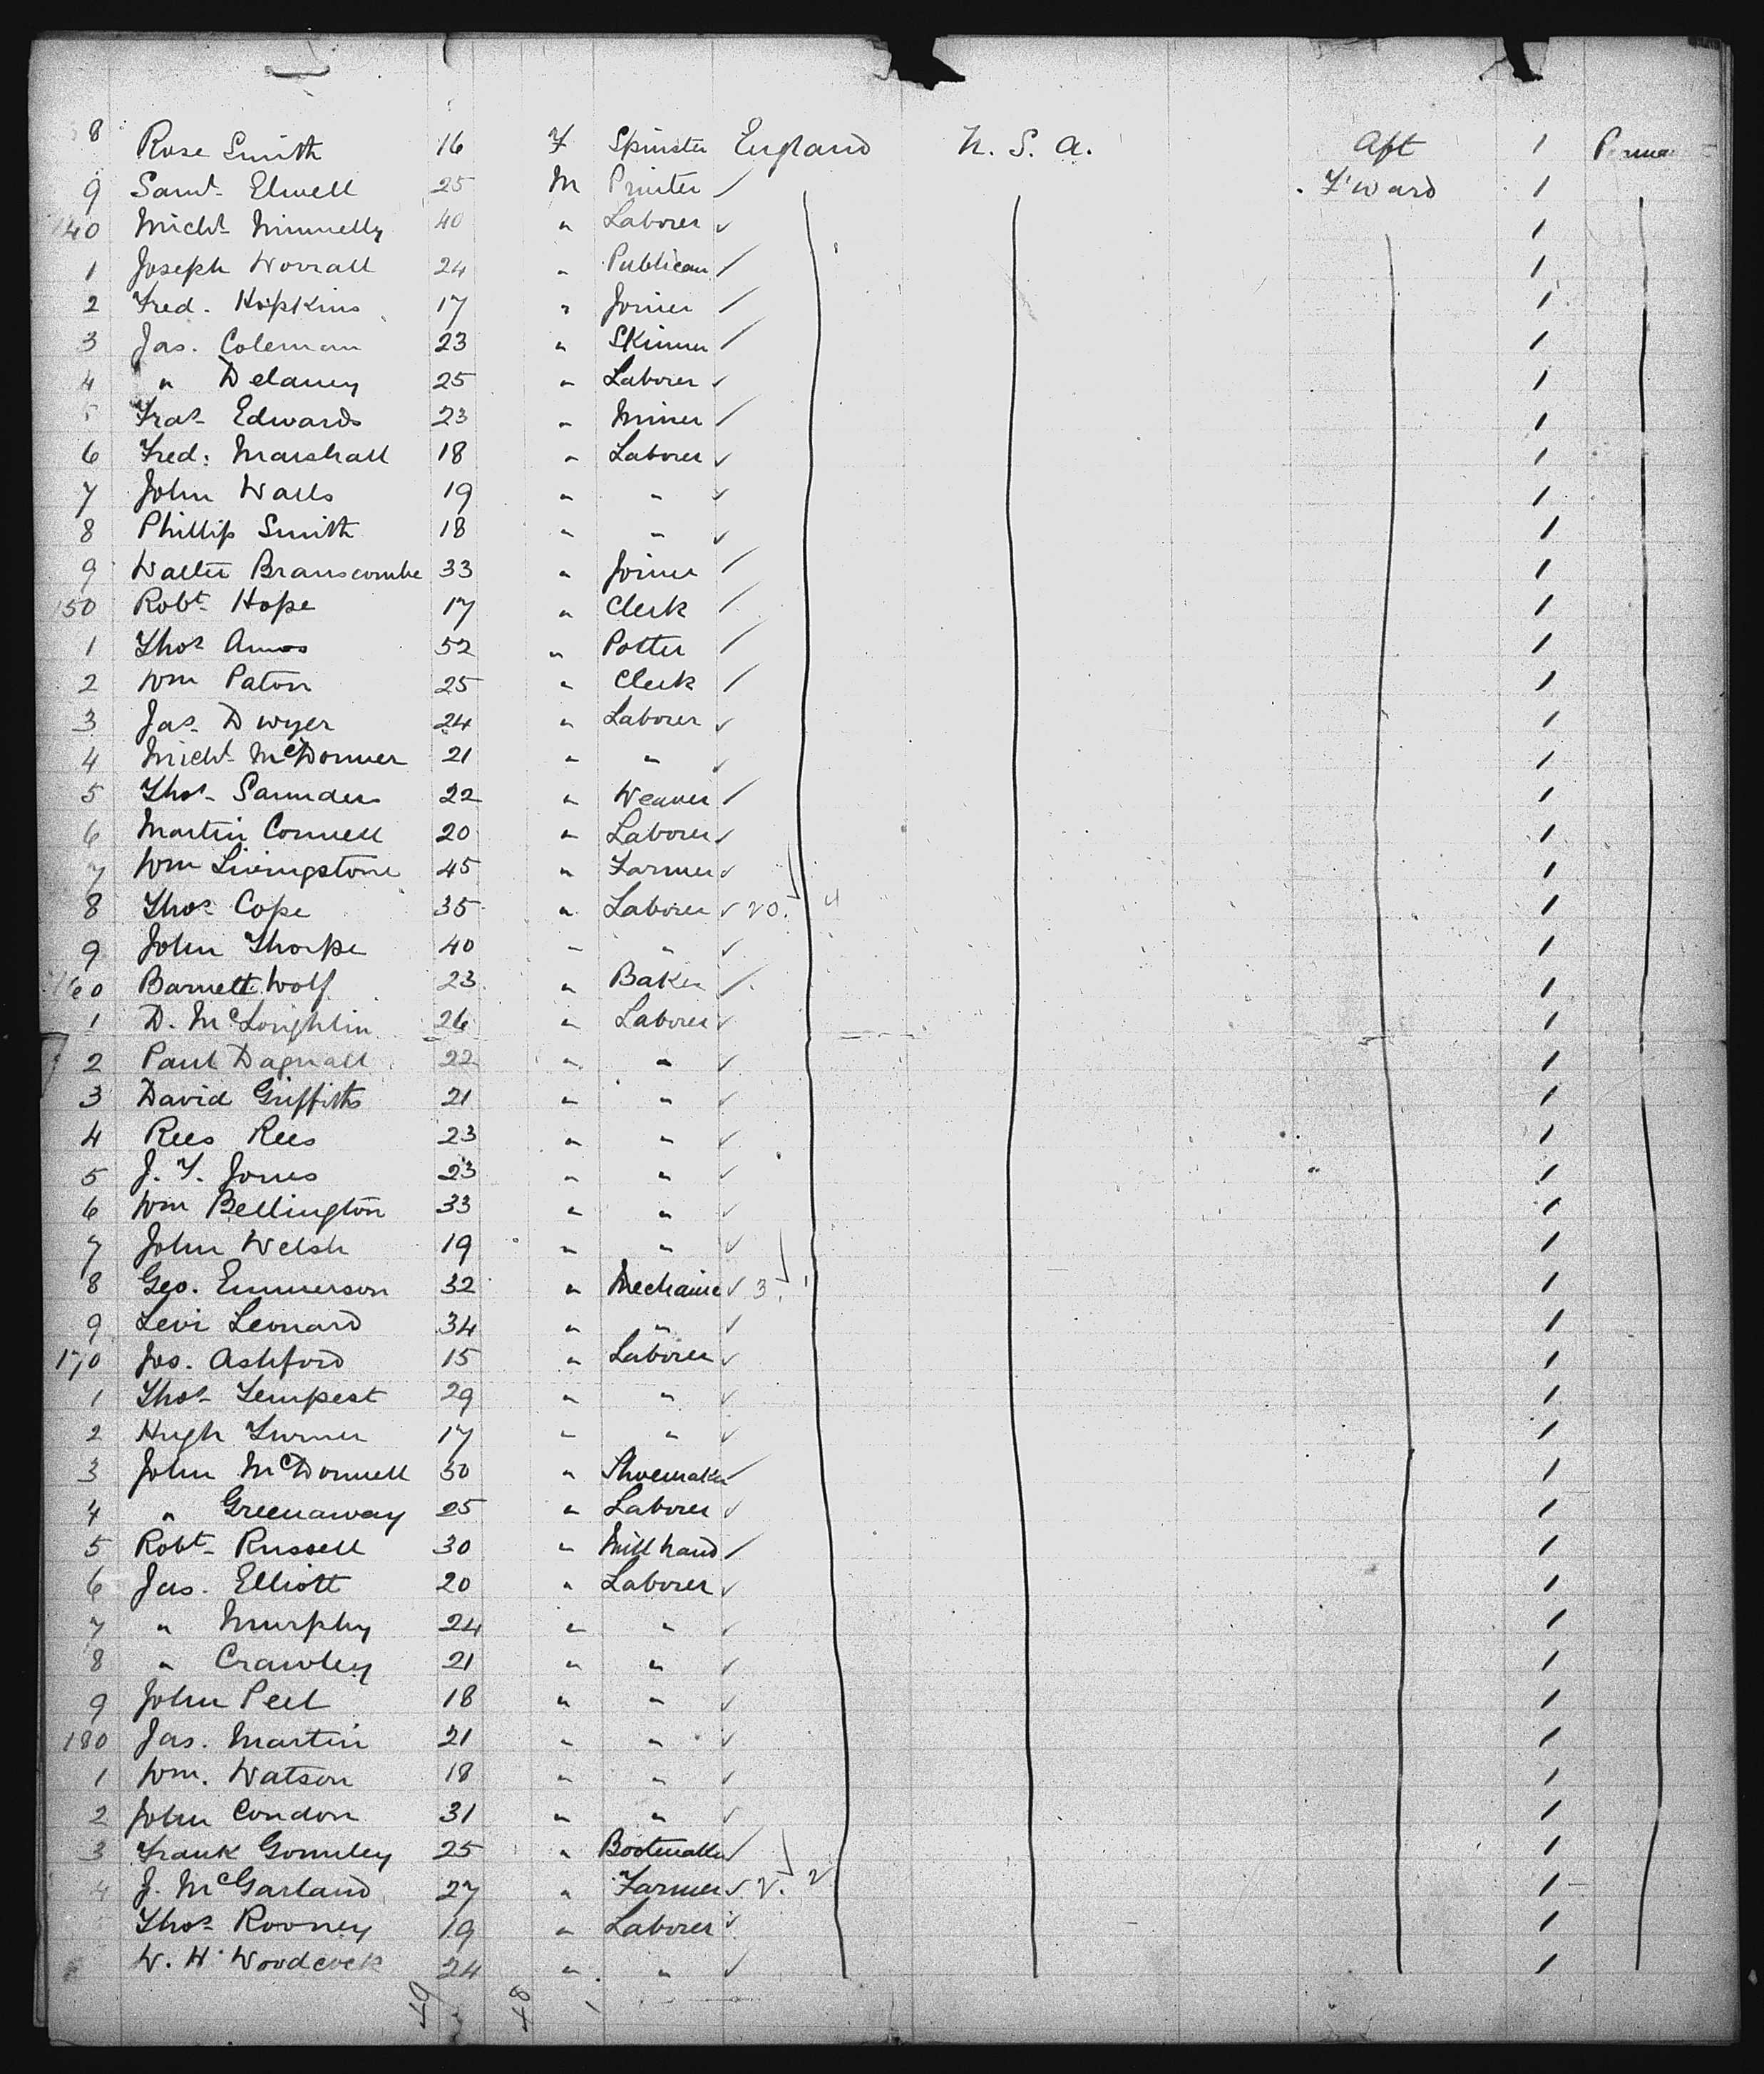 8 Rose Smith 16 F Spinster England U. S. A. Aft 1
9 Saml Elwell 25 M Printer / F'ward 1
140 Michl 40 " Laborer ✓ 1
1 Joseph Worrall 24 " Publican / 1
2 Fred. Hopkins 17 " Joiner / 1
3 Jas. Coleman 23 " Skinner / 1
4 " Delaney 25 " Laborer ✓ 1
5 Fras Edwards 23 " Miner / 1
6 Fred: Marshall 18 " Laborer ✓ 1
7 John Walls 19 " " ✓ 1
8 Phillip Smith 18 " " ✓ 1
9 Walter Branscombe 33 " Joiner / 1
150 Robt Hope 17 " Clerk / 1
1 Thos Amos 52 " Potter / 1
2 Wm Paton 25 " Clerk / 1
3 Jas Dwyer 24 " Laborer ✓ 1
4 Michl 21 " " ✓ 1
5 Thos Saunders 22 " Weaver / 1
6 Martin Connell 20 " Laborer ✓ 1
7 Wm Livingstone 45 " Farmer ✓ 1
8 Thos Cope 35 " Laborer ✓ 20. 4 1
9 John Thorpe 40 " " ✓ 1
160 Barnett Wolf 23 " Baker / 1
1 D. McLoughlin 26 " Laborer ✓ 1
2 Paul Dagnall 22 " " ✓ 1
3 David Griffiths 21 " " ✓ 1
4 Rees Rees 23 " " ✓ 1
5 J. T. Jones 23 " " ✓ 1
6 Wm Bellington 33 " " ✓ 1
7 John Welsh 19 " " ✓ 1
8 Geo. Emmerson 32 " Mechanic ✓ 3. 1 1
9 Levi Leonard 34 " " ✓ 1
170 Jos. Ashford 15 " Laborer ✓ 1
1 Thos Tempest 29 " " ✓ 1
2 Hugh Turner 17 " " ✓ 1
3 John McDonnell 30 " Shoemaker / 1
4 " Greenaway 25 " Laborer ✓ 1
5 Robt Russell 30 " Mill hand / 1
6 Jas. Elliott 20 " Laborer ✓ 1
7 " Murphy 24 " " ✓ 1
8 " Crawley 21 " " ✓ 1
9 John Peel 18 " " ✓ 1
180 Jas. Martin 21 " " ✓ 1
1 Wm. Watson 18 " " ✓ 1
2 John Condon 31 " " ✓ 1
3 Frank Gormley 25 " Bootmaker / 1
4 J. McGarland 27 " Farmer ✓ 2. 2 1
Thos Rooney 19 " Laborer ✓ 1
W. H. Woodcock 24 " " ✓ 1
49 48 1